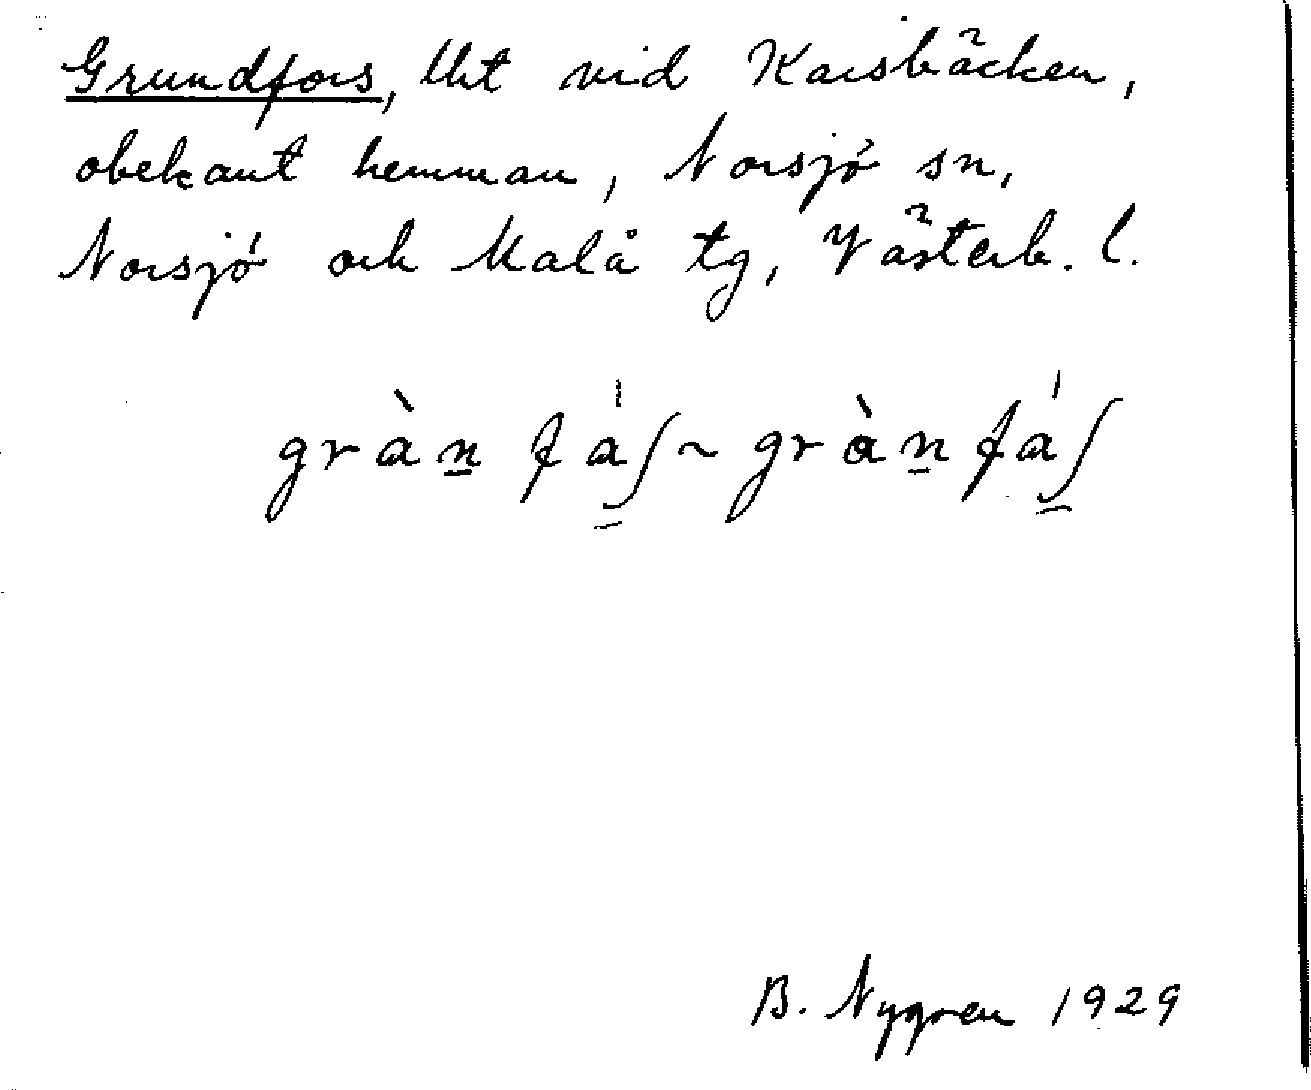 Grundfors, Utt vid Karsbäcken,
obekant hemman, Norsjö sn,
Norsjö och Malå tg, Västerb. l.
gràn̠ fá̠ʃ ~ gràn̠fá̠ʃ
B. Nygren 1929